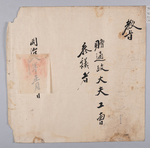 教旨
贈通政大夫工曹
參議者
同治